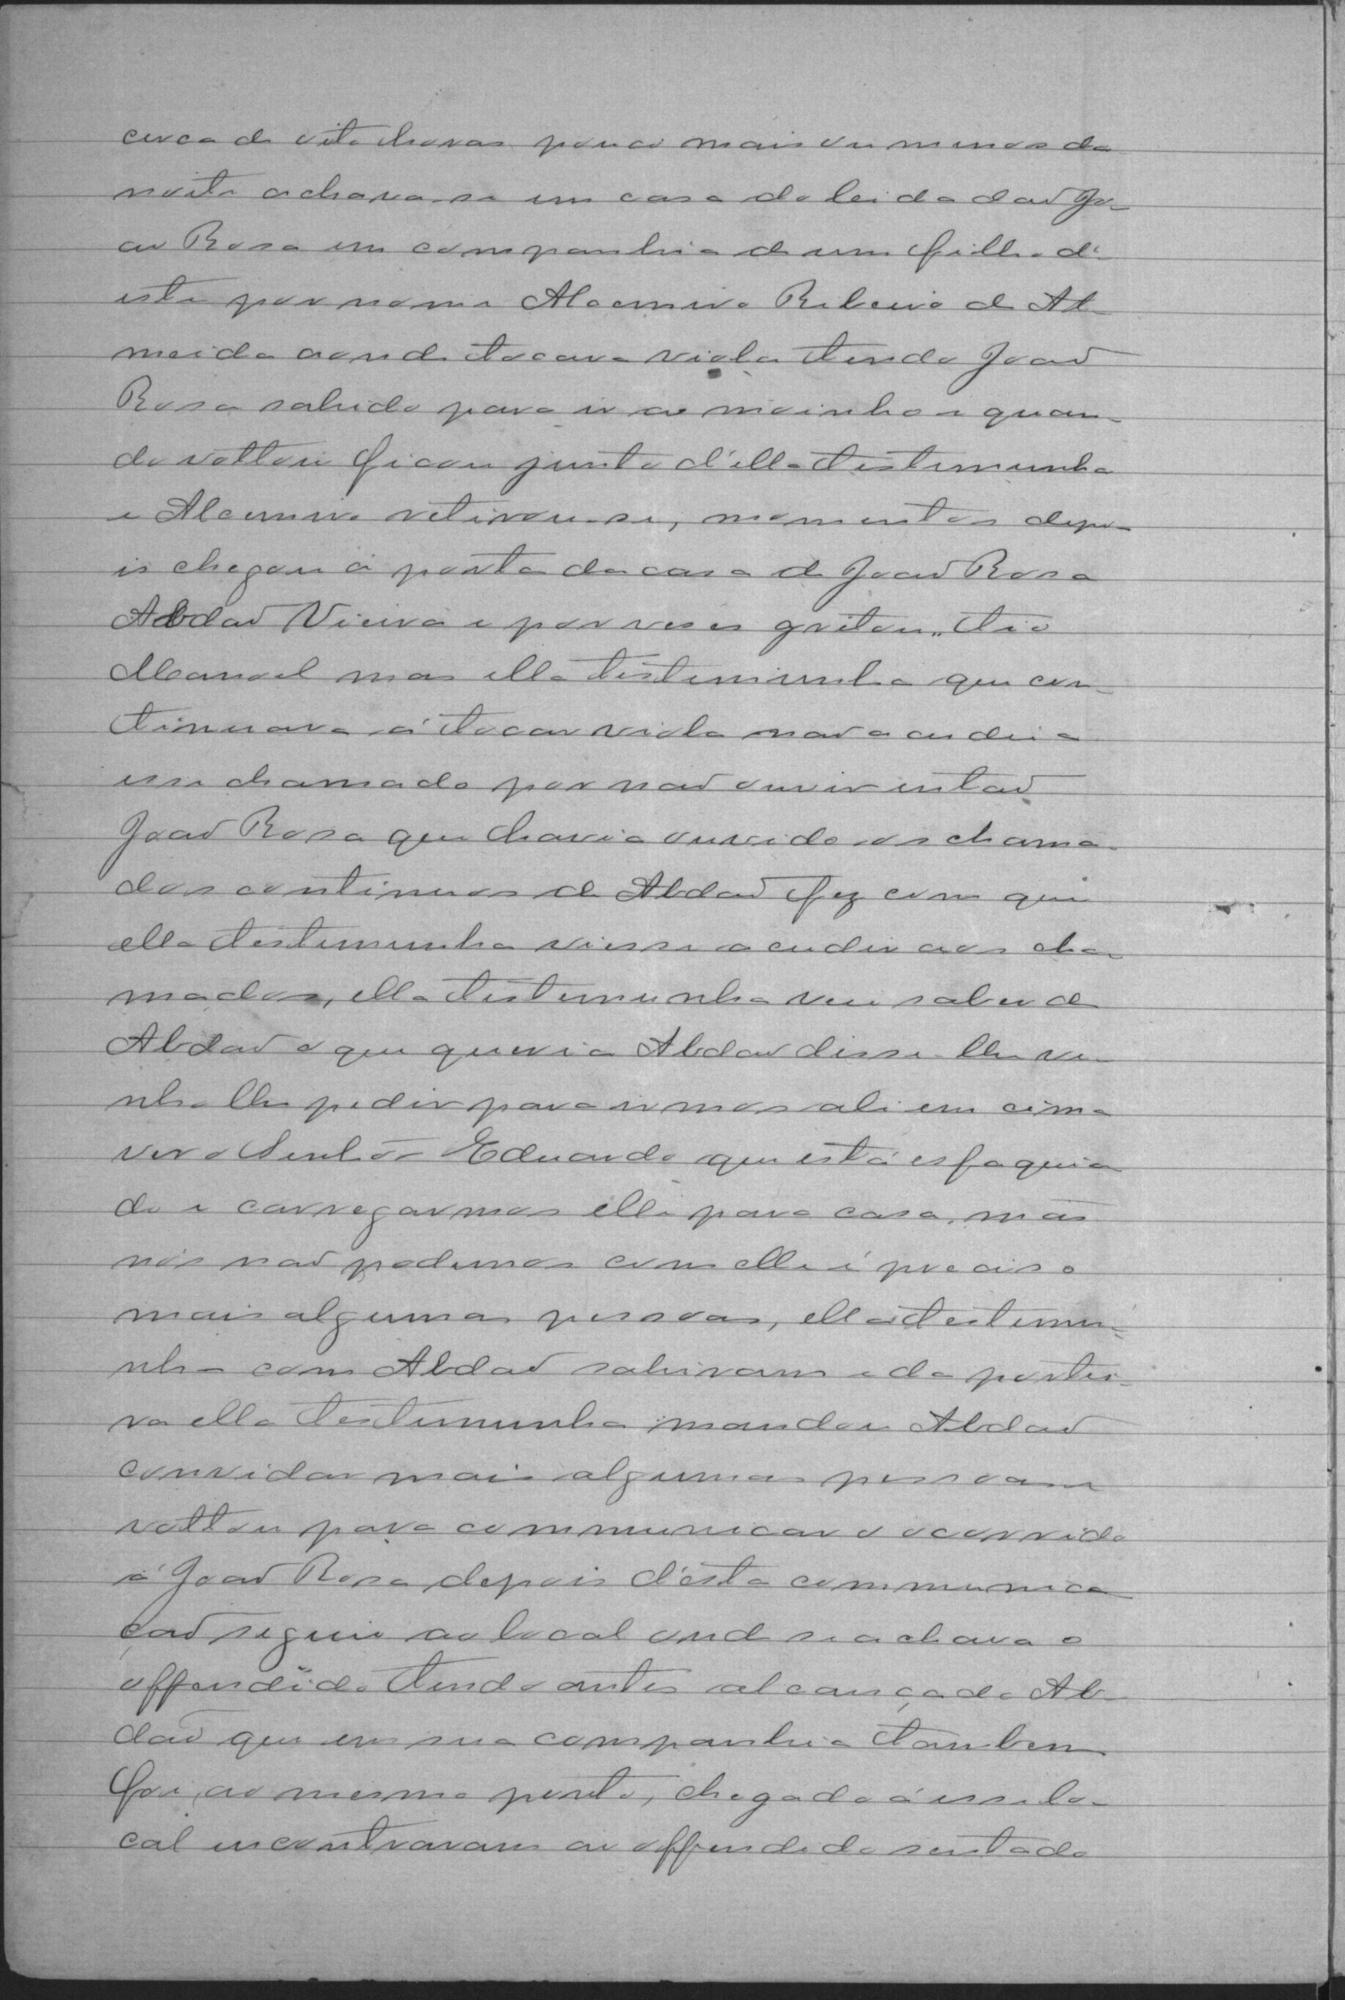 cerca de oito horas pouco mais ou menos da
noite achava-se em casa do cidadaõ Jo-
aõ Rosa em companhia de um filho d'
este por nome Alcemiro Ribeiro de Al-
meida aonde tocava viola tendo Joaõ
Rosa sahido para ir ao moinho e quan-
do voltou ficou junto d'elle testemunha
e Alcemiro retirou-se, momentos depo-
is chegou á porta da casa de Joaõ Rosa
Abdaõ Vieira e por veses gritou „ tio
Manoel mas elle testemunha que con-
tinuava á tocar viola naõ acudia
esse chamado por naõ ouvir entaõ
Joaõ Rosa que havia ouvido os chama-
dos continuos de Abdaõ fez com que
elle testemunha viesse acudir aos cha-
mados, elle testemunha veu saber de
Abdaõ o que queria Abdaõ disse-lhe ve-
nho lhe pedir para irmos ali em cima
ver o Senhôr Eduardo que está esfaquia-
do e carregarmos elle para casa, mas
nós naõ podemos com elle é preciso
mais algumas pessoas, elle testemu-
nha com Abdaõ sahiram e da portei-
ra elle testemunha mandou Abdaõ
convidar mais algumas pessoas e
voltou para communicar o ocorrido
á Joaõ Rosa depois d'esta communica-
çaõ seguiu ao local onde se achava o
offendido tendo antes alcançado Ab-
daõ que em sua companhia tambem
foi ao mesmo ponto, chegado á esse lo-
cal encontraram ao offendido sentado